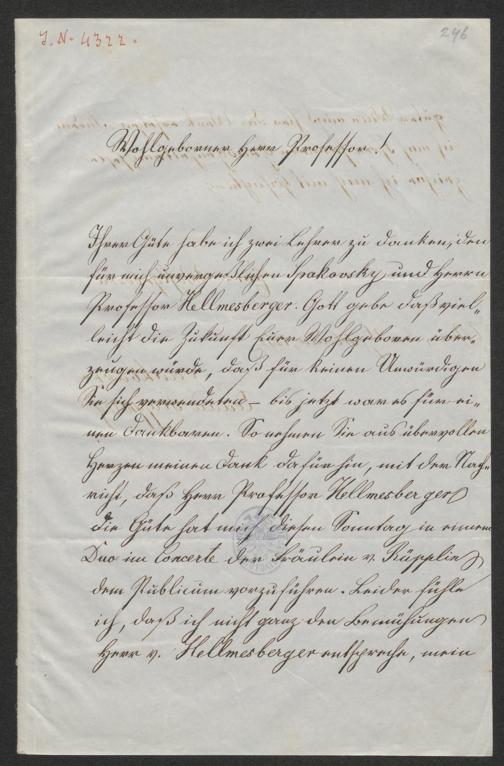 J. N. 4322.
246
Wohlgeborner Herr Professor!
Ihrer Güte habe ich zwei Lehrer zu danken, den
für mich unvergeßlichen Spakovsky, und Herrn
Professor Hellmesberger. Gott gebe daß viel-
leicht die Zukunft Euer Wohlgeboren über-
zeugen würde, daß für keinen Unwürdigen
Sie sich verwendeten – bis jetzt war es für ei-
nen Dankbaren. So nehmen Sie aus übervollen
Herzen meinen Dank dafür hin, mit der Nach-
richt, daß Herr Professor Hellmesberger
die Güte hat mich diesen Sonntag in einem
Duo im Concerte der Fräulein v.
dem Publicum vorzuführen. Leider fühle
ich, daß ich nicht ganz den Bemühungen
Herr v. Hellmesberger entspreche, mein